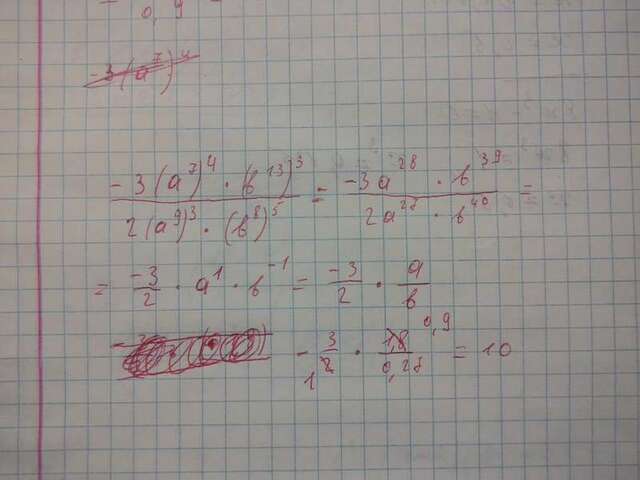 0,9
-3(a^7)^4
\frac{-3(a^7)^4 · (b^{13})^3}{2(a^9)^3 · (b^8)^5} = \frac{-3a^{28} · b^{39}}{2a^{27} · b^{40}} =
= \frac{-3}{2} · a^1 · b^{-1} = \frac{-3}{2} · \frac{a}{b}
- \frac{3}{2} · \frac{1,8}{0,27} = 10
1 0,9